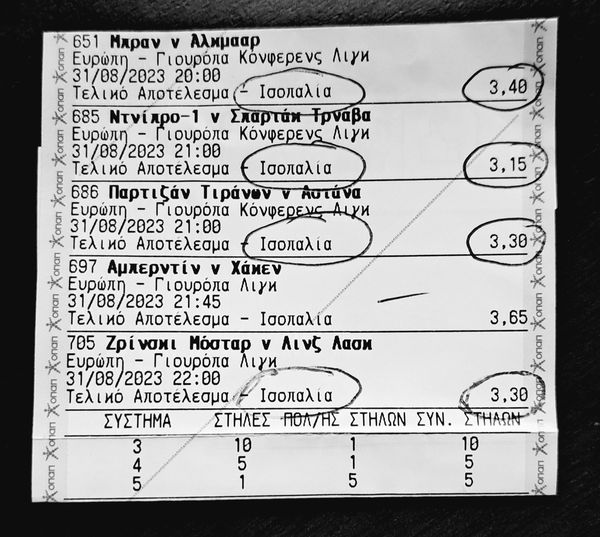 651 Μπραν v Αλκμααρ
Ευρώπη - Γιουρόπα Κόνφερενς Λιγκ
31/08/2023 20:00
Τελικό Αποτέλεσμα - Ισοπαλία 3,40
685 Ντνίπρο-1 v Σπαρτάκ Τρναβα
Ευρώπη - Γιουρόπα Κόνφερενς Λιγκ
31/08/2023 21:00
Τελικό Αποτέλεσμα - Ισοπαλία 3,15
686 Παρτιζάν Τιράνων v Αστάνα
Ευρώπη - Γιουρόπα Κόνφερενς Λιγκ
31/08/2023 21:00
Τελικό Αποτέλεσμα - Ισοπαλία 3,30
697 Αμπερντίν v Χάκεν
Ευρώπη - Γιουρόπα Λιγκ
31/08/2023 21:45
Τελικό Αποτέλεσμα - Ισοπαλία 3,65
705 Ζρίνσκι Μόσταρ v Λινζ Λασκ
Ευρώπη - Γιουρόπα Λιγκ
31/08/2023 22:00
Τελικό Αποτέλεσμα - Ισοπαλία 3,30
ΣΥΣΤΗΜΑ ΣΤΗΛΕΣ ΠΟΛ/ΗΣ ΣΤΗΛΩΝ ΣΥΝ. ΣΤΗΛΩΝ
3 10 1 10
4 5 1 5
5 1 5 5
οπαπ οπαπ οπαπ οπαπ οπαπ οπαπ οπαπ
οπαπ οπαπ οπαπ οπαπ οπαπ οπαπ οπαπ